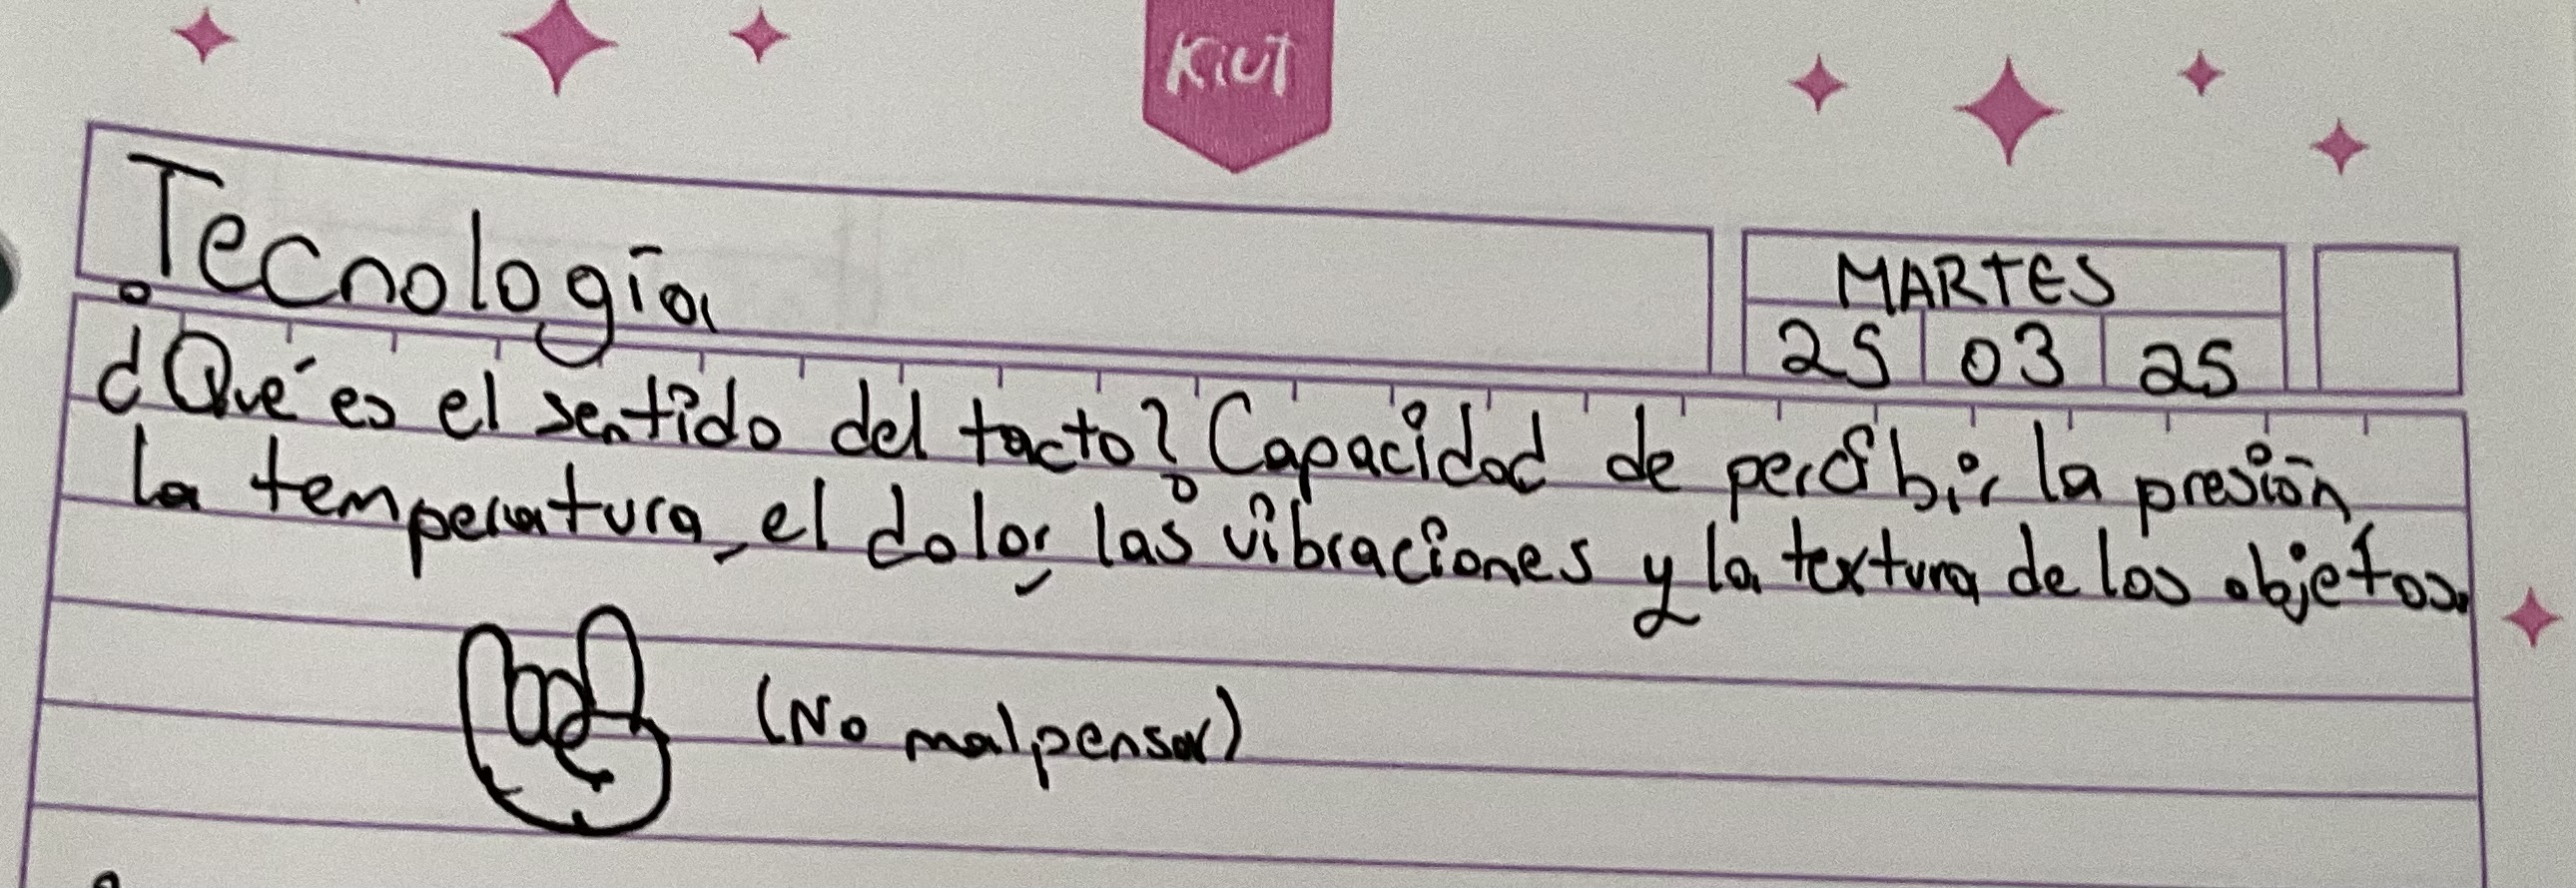 Kiut
Tecnología
MARTES
25 03 25
¿Qué es el sentido del tacto? Capacidad de percibir la presión,
la temperatura, el dolor, las vibraciones y la textura de los objetos.
(No malpensar)